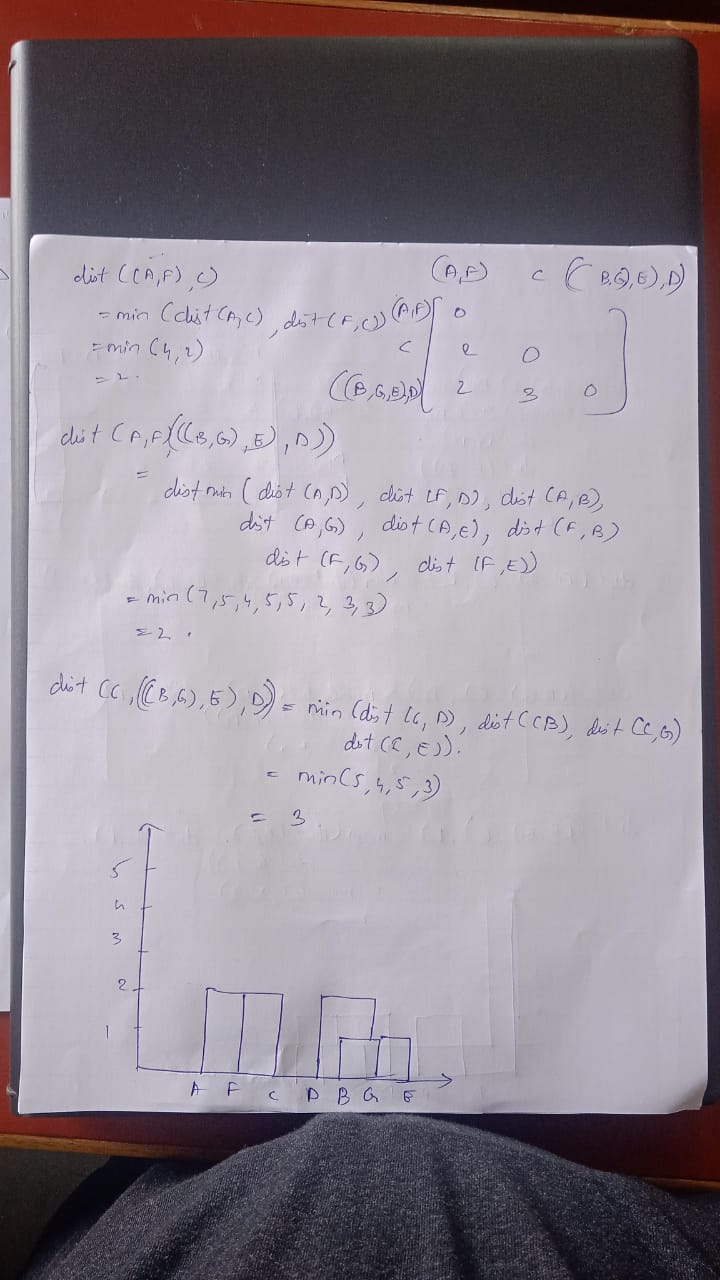 dist ((A,F),C)
= min (dist (A,C), dist (F,C))
= min (4,2)
= 2.
(A,F) C ((B,G),E),D)
(A,F) 0
C 2 0
((B,G,E),D) 2 3 0
dist (A,F)(((B,G),E),D))
=
dist min (dist (A,D), dist (F,D), dist (A,B),
dist (A,G), dist (A,E), dist (F,B)
dist (F,G), dist (F,E))
= min (7,5,4,5,5,2,3,3)
= 2.
dist (C,((B,G),E),D)) = min (dist (C,D), dist (CB), dist (C,G)
dist (C,E)).
= min (5,4,5,3)
= 3.
5
4
3
2
1
A F C D B G E